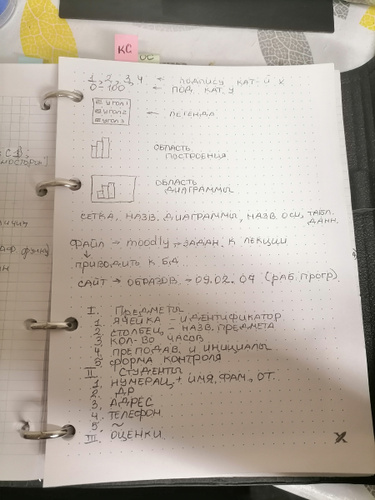 КС
1, 2, 3, 4 ← подписи кат-й X
0-100 ← под. кат. У
угол1
угол2
угол3
← легенда
область
построения
область
диаграммы
сетка, назв. диаграммы, назв. оси, табл.
данн.
файл → moodly → задан. к лекции
↓
приводить к БД
сайт → образов. → 09.02.07 (раб. прогр)
I. Предметы
1. ячейка - идентификатор
2. столбец - назв. предмета
3. кол-во часов
4. преподав. и инициалы
5. форма контроля
II. Студенты
1. нумерац. + имя, фам., от.
2. ДР
3. адрес
4. телефон
5. ~
III. Оценки